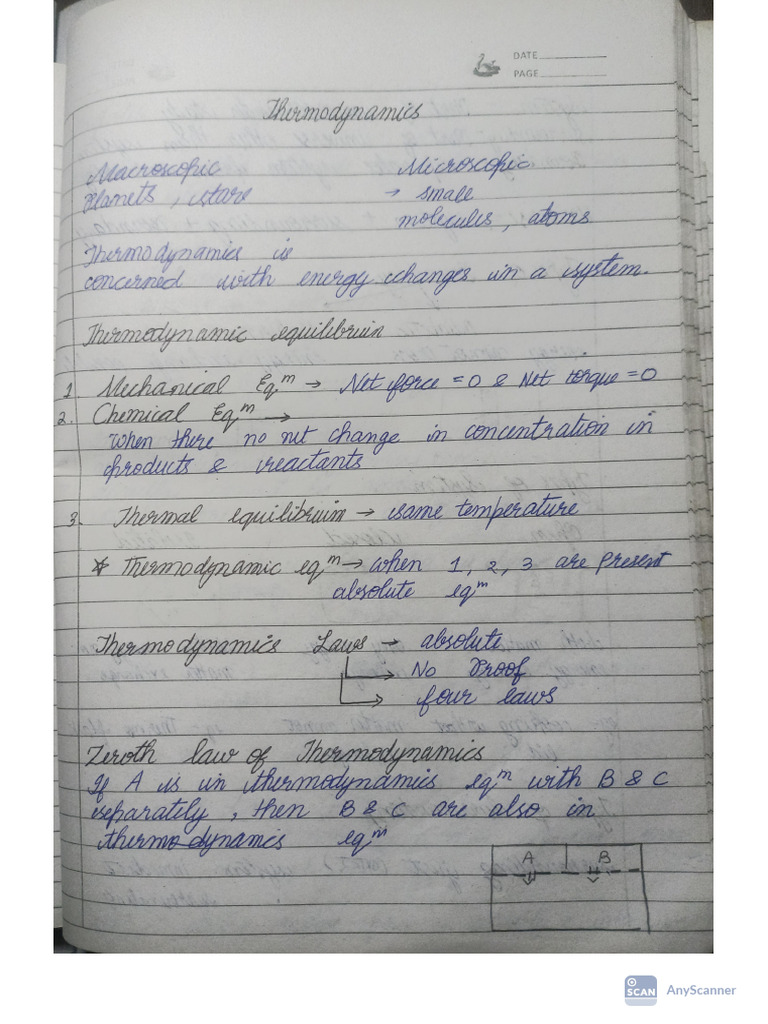 DATE
PAGE
Thermodynamics
Macroscopic Microscopic
Planets, stars → small
molecules, atoms
Thermodynamics is
concerned with energy changes in a system.
Thermodynamic equilibrium
1. Mechanical Eqᵐ → Net force = 0 & Net torque = 0
2. Chemical Eqᵐ →
When there no net change in concentration in
products & reactants
3. Thermal equilibrium → same temperature
* Thermodynamic eqᵐ → when 1, 2, 3 are present
absolute eqᵐ
Thermodynamics Laws → absolute
→ No Proof
→ four laws
Zeroth law of Thermodynamics
If A is in thermodynamics eqᵐ with B & C
separately, then B & C are also in
thermodynamics eqᵐ
A B
SCAN AnyScanner